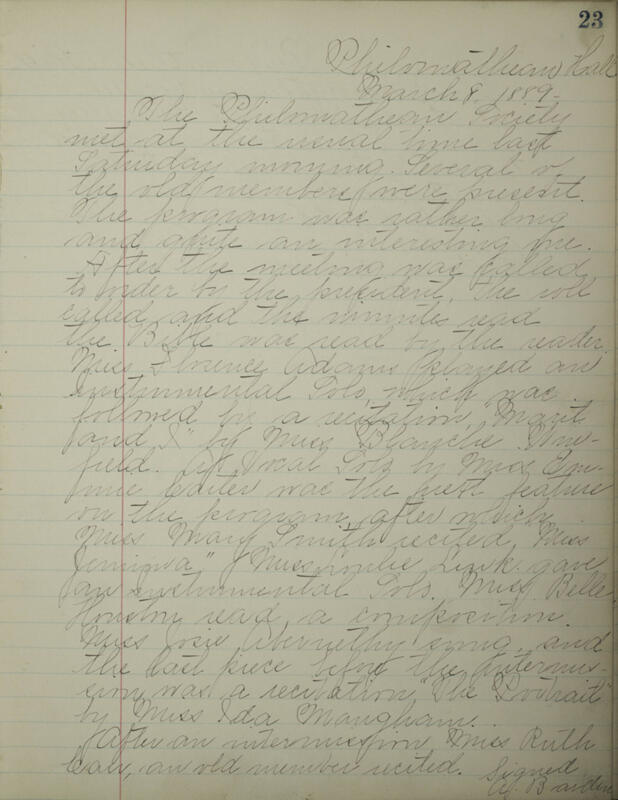 23
Philomathean Hall
March 8, 1889.
The Philomathean Society
met at the usual time last
Saturday morning. Several o
the old members were present.
The program was rather long
and quite an interesting one.
After the meeting was called
to order by the president, the roll
called and the minutes read
the Bible was read by the reader.
Miss Florence Adams played an
instrumental Solo, which was
followed by a recitation,
and I" by Miss Blanche
field. A Vocal Solo by Miss Em-
mie Carter was the next feature
on the program, after which
Miss Mary Smith recited, Miss
" Miss Link gave
an instrumental Solo. Miss Belle
Houston read a composition.
Miss Josie Abernethy sang and
the last piece before the intermis-
sion was a recitation "The Portrait"
by Miss Ida Mangham.
After an intermission Miss Ruth
an old member recited. Signed